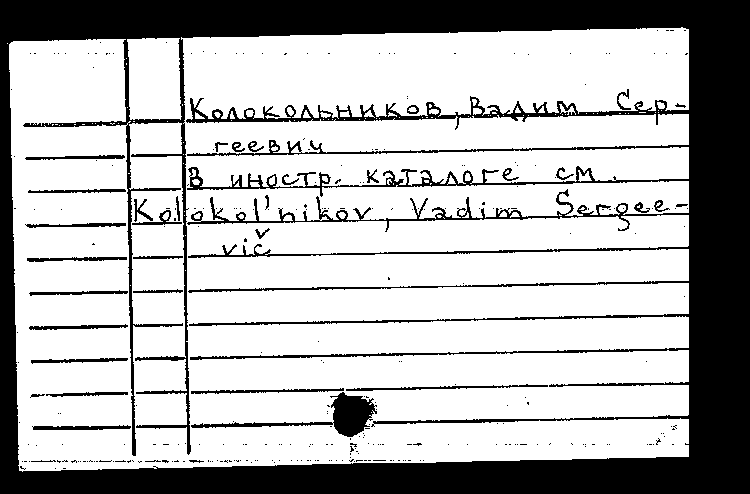 Колокольников, Вадим Сер-
геевич
В иностр. каталоге см.
Kolokol'nikov, Vadim Sergee-
vič